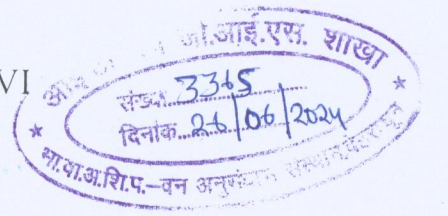 VI
जी.आई.एस. शाखा
संख्या 3365
दिनांक 26/06/2024
भा.वा.अ.शि.प.–वन अनुसंधान संस्थान, देहरादून